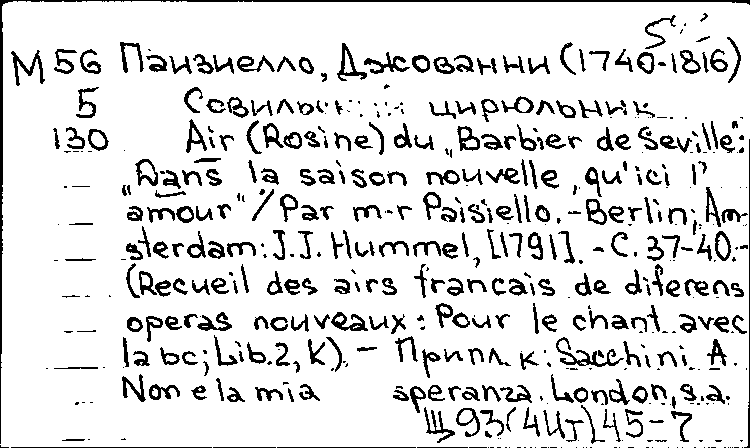 М 56 Паизиелло, Джованни (1740-1816)
5 Севильский цирюльник
130 Air (Rosine) du „Barbier de Seville":
„Dans la saison nouvelle, qu'ici l'
amour" / Par m-r Paisiello. - Berlin; Am-
sterdam: J.J. Hummel, [1791]. - С. 37-40. -
(Recueil des airs francais de diferens
operas nouveaux: Pour le chant avec
la bc; Lib. 2, K). - Припл. к: Sacchini A.
Non e la mia speranza. London, s.a.
Щ93(4Ит)45-7